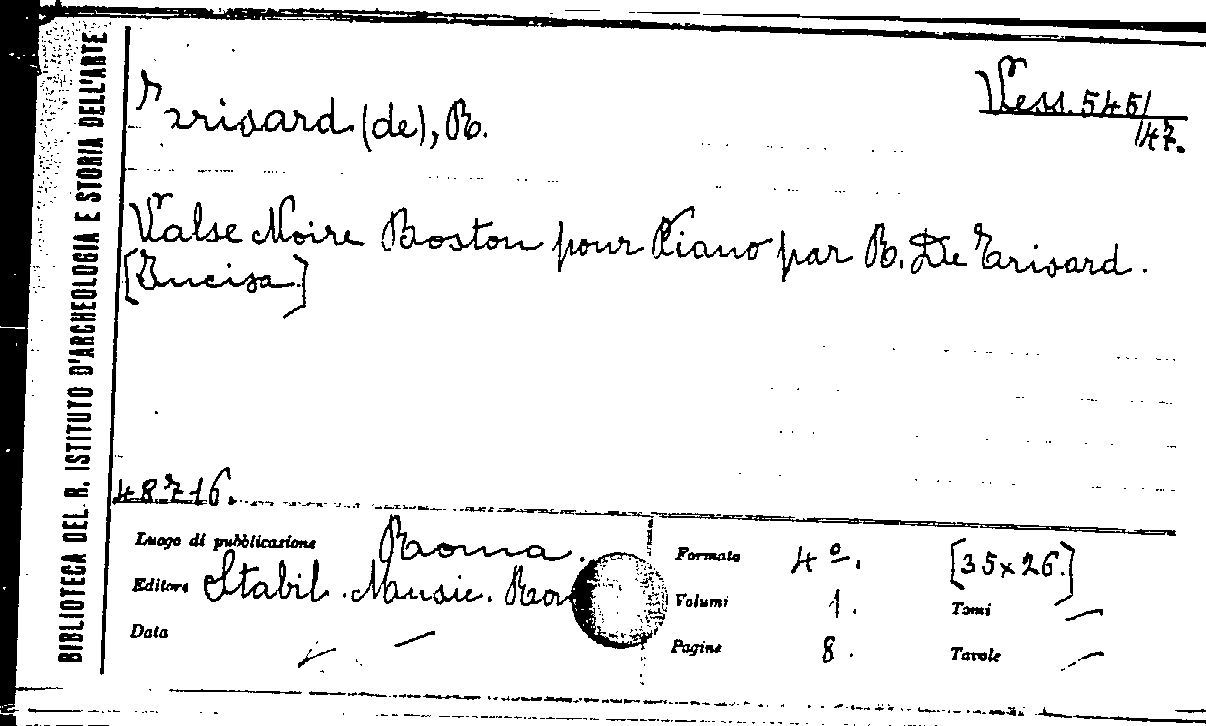 BIBLIOTECA DEL R. ISTITUTO D'ARCHEOLOGIA E STORIA DELL'ARTE
Vess. 545/
47.
Trisard (de), R.
Valse Noire Boston pour Piano par R. De Trisard.
[Incisa]
48716.
Luogo di pubblicazione Roma.
Editore Stabil. Music. Rom
Data —
Formato 4º. [35x26.]
Volumi 1. Tomi —
Pagine 8. Tavole —